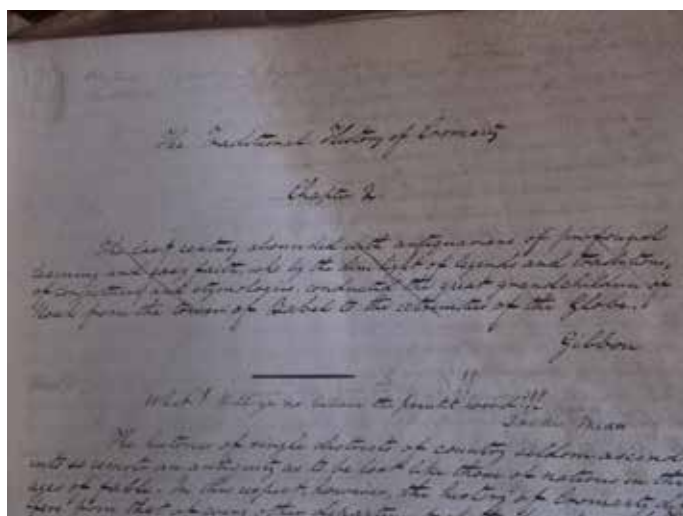 The Traditional History of Cromarty
Chapter 2
The last century abounded with antiquarians of profound
learning and easy faith, who by the dim light of legends and traditions,
of conjectures and etymologies, conducted the great grandchildren of
Noah from the tower of Babel to the extremities of the Globe.
Gibbon
What! Will ye no believe the word!!
The histories of single districts of country seldom ascend
into so remote an antiquity as to be lost like those of nations in the
ages of fable. In this respect however, the history of Cromarty
from that of every other